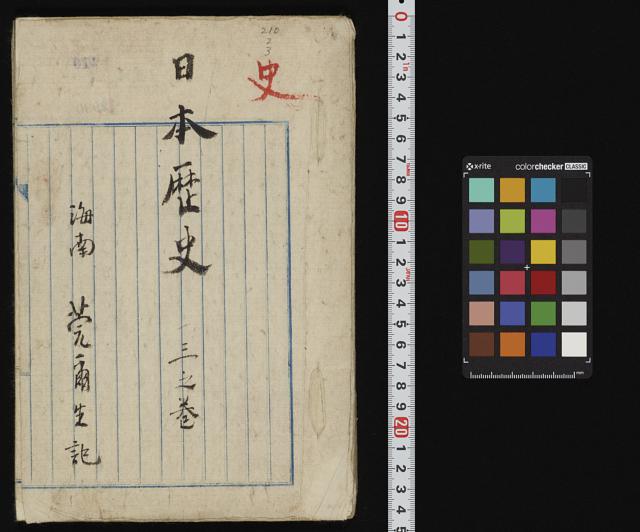 210
2
3
史
日本歴史 三之巻
海南 莞爾生記
0 1 2 3 4 5 6 7 8 9 10 1 2 3 4 5 6 7 8 9 20 1 2 3 4 5
x-rite colorchecker CLASSIC
mm